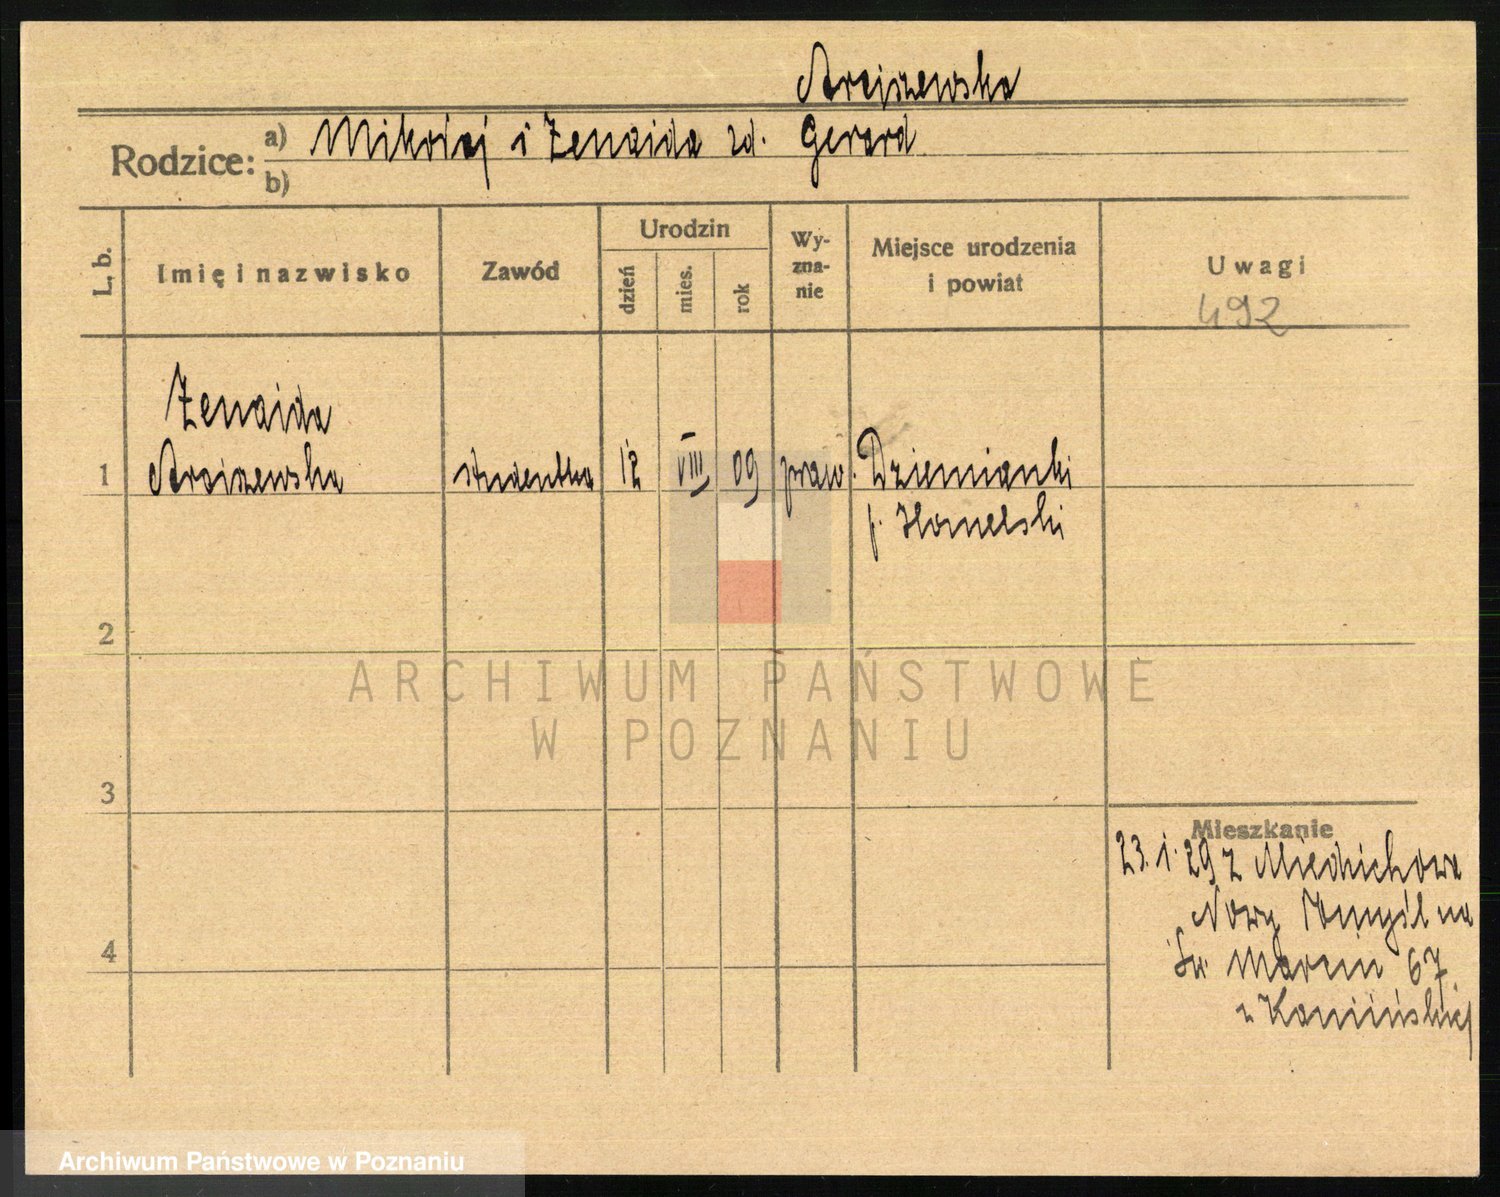 Arciszewska
Rodzice: a) Mikołaj i Zenaida zd. Gerard
b)
L. b.
Imię i nazwisko
Zawód
Urodzin
dzień
mies.
rok
Wy-
zna-
nie
Miejsce urodzenia
i powiat
Uwagi
492
Zenaida
1 Arciszewska studentka 12 VIII 09 praw. Dziemianki
p. Homelski
2
3
4
Mieszkanie
23. 1. 29 z Miedzichowa
Nowy Tomyśl na
Św. Marcin 67
u Kamińskiej
ARCHIWUM PAŃSTWOWE
W POZNANIU
Archiwum Państwowe w Poznaniu